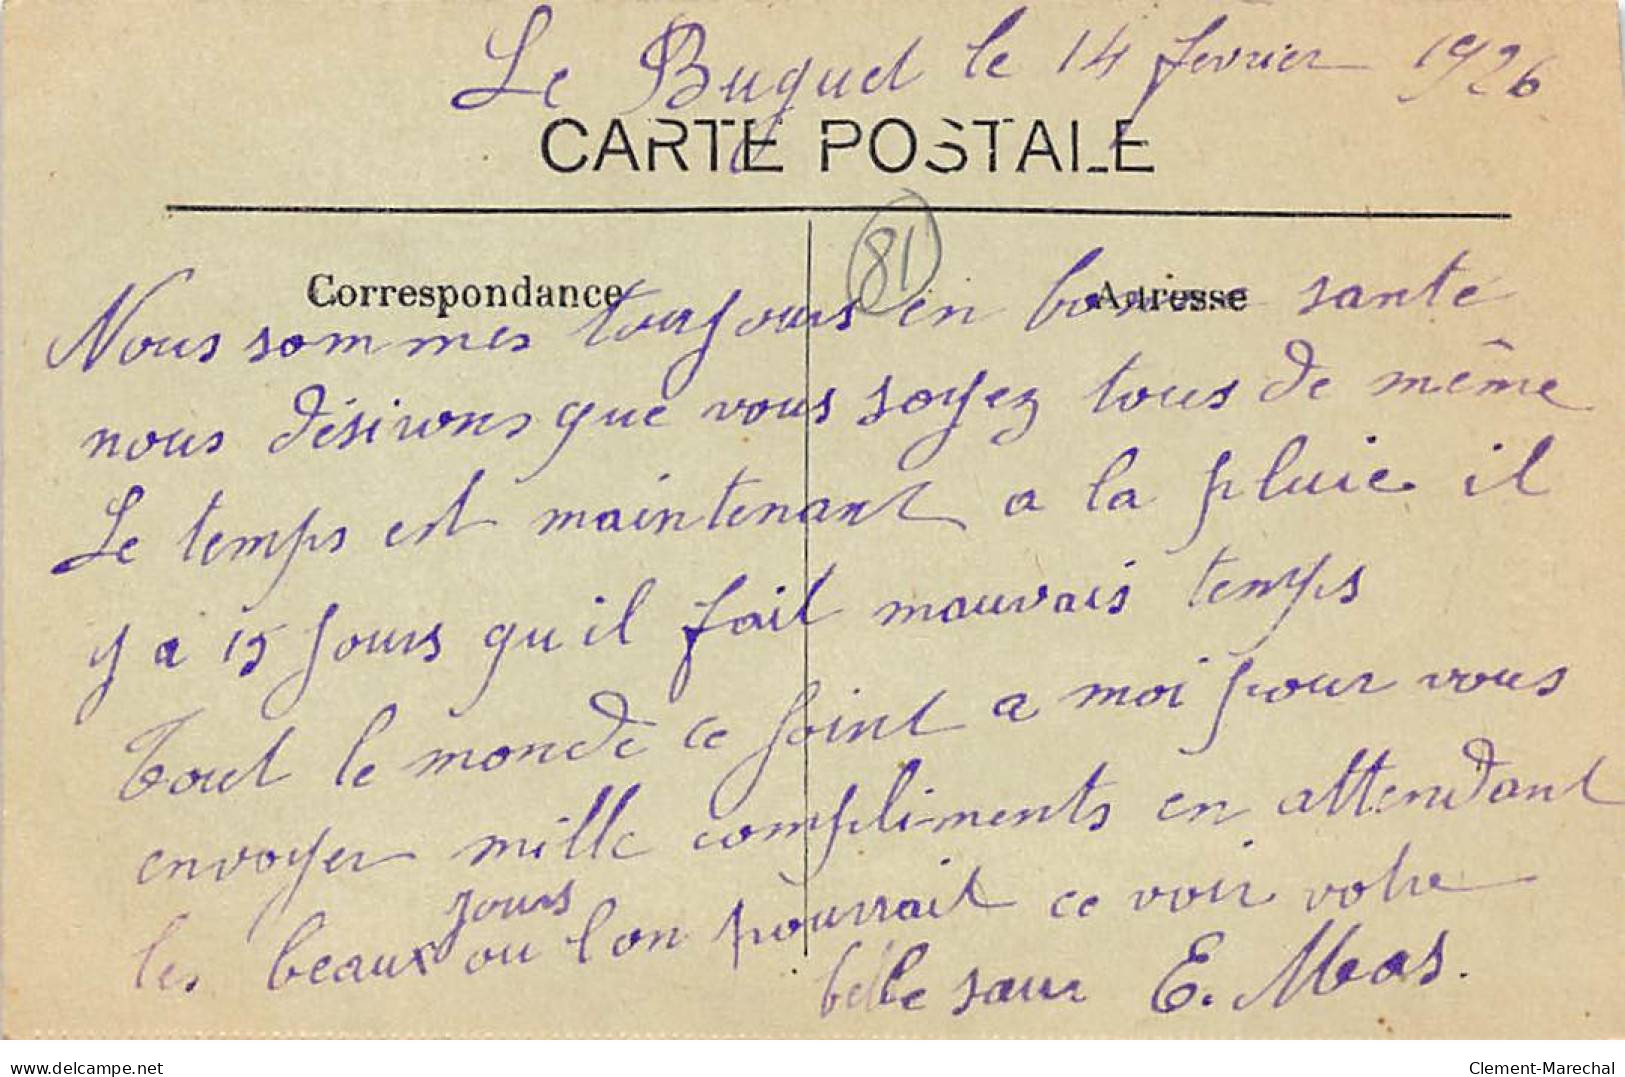 Le Buguet le 14 fevrier 1926
CARTE POSTALE
81
Correspondance
Adresse
Nous sommes toujours en bonne santé
nous désirons que vous soyez tous de même
Le temps est maintenant a la pluie il
y a 15 jours qu'il fait mauvais temps
Tout le monde ce joint a moi pour vous
envoyer mille compliments en attendant
jours
les beaux ou l'on pourrait ce voir votre
belle sœur E. Mas.
delcampe.net
Clement-Marechal